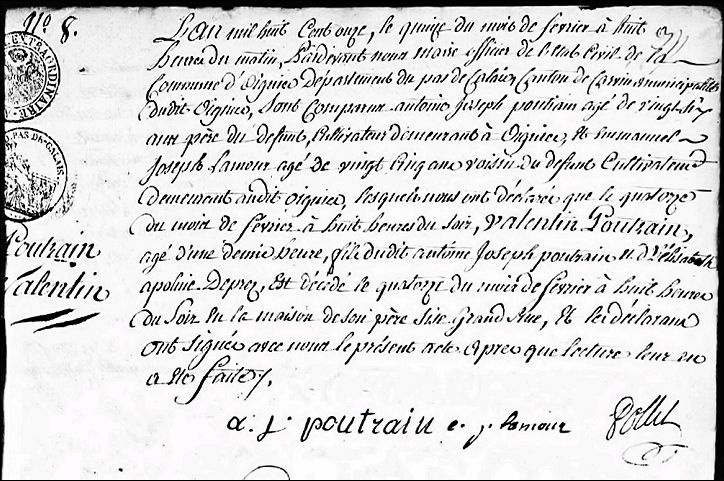 N.º 8.
L'an mil huit Cent onze, le quinze du mois de fevrier à huit
heures du matin, Pardevant nous Maire officier de l'Etat Civil de la
Commune d'Oignies Département du pas de Calais, Canton de Carvin, municipalité
dudit Oignies, Sont Comparus antoine Joseph poutrain agé de vingt
ans père du defunt, Cultivateur demeurant à Oignies, Et Emmanuel
Joseph Lamour agé de vingt Cinq ans voisin du defunt Cultivateur
demeurant audit oignies, lesquels nous ont déclaré que le quatorze
du mois de fevrier à huit heures du Soir, Valentin Poutrain,
agé d'une demie heure, fils dudit antoine Joseph poutrain et d'Elisabeth
apoline Deprez, Est décédé le quatorze du mois de fevrier à huit heures
du Soir en la maison de Son père Sise Grand Rue, Et les déclarans
ont Signés avec nous le présent acte après que lecture leur en
a été faite.
EXTRAORDINAIRE
PAS DE CALAIS
Poutrain
Valentin
a. j. poutrain e. j. lamour Pollet